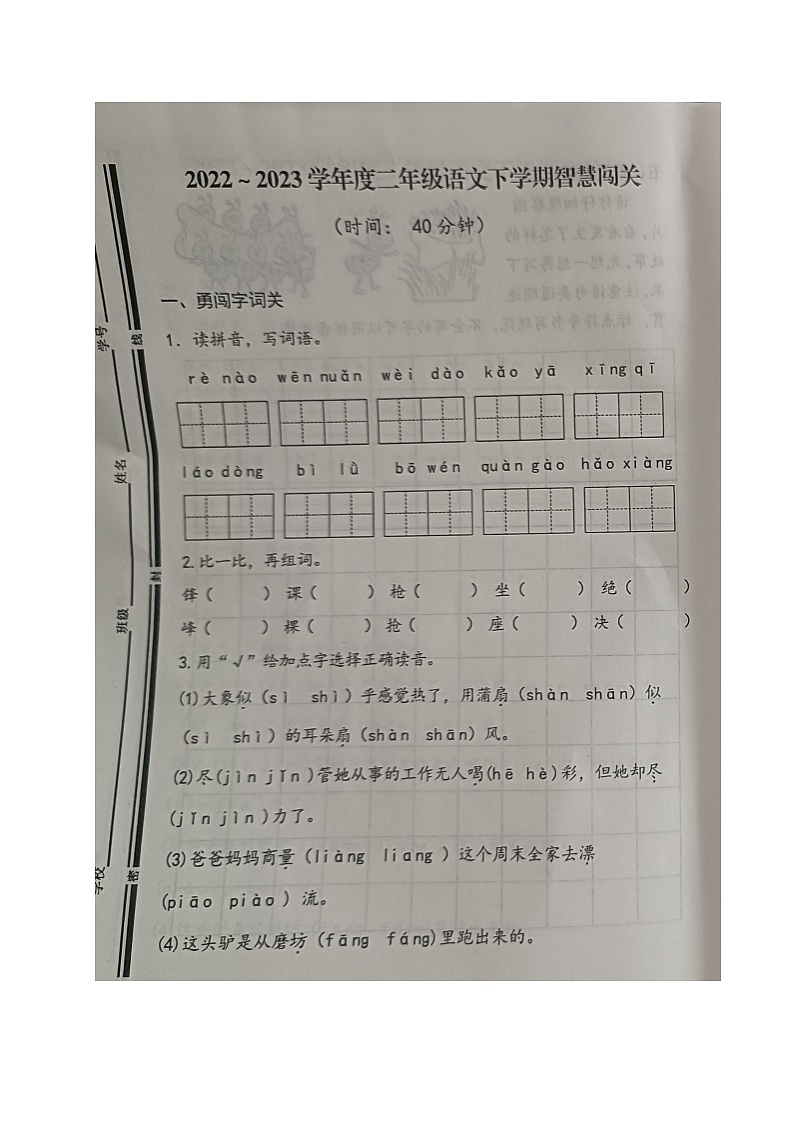 2022 ~ 2023 学年度二年级语文下学期智慧闯关
（时间： 40 分钟）
一、勇闯字词关
1．读拼音，写词语。
rè nào wēn nuǎn wèi dào kǎo yā xīng qī
láo dòng bì lǜ bō wén quàn gào hǎo xiàng
2.比一比，再组词。
锋（ ） 课（ ） 枪（ ） 坐（ ） 绝（ ）
峰（ ） 棵（ ） 抢（ ） 座（ ） 决（ ）
3.用“√”给加点字选择正确读音。
(1)大象似（sì shì）乎感觉热了，用蒲扇（shàn shān）似
（sì shì）的耳朵扇（shàn shān）风。
(2)尽(jìn jǐn)管她从事的工作无人喝(hē hè)彩，但她却尽
(jǐn jìn)力了。
(3)爸爸妈妈商量（liàng liang）这个周末全家去漂
(piāo piào）流。
(4)这头驴是从磨坊（fāng fáng)里跑出来的。
学号
姓名
班级
学校
线
封
密